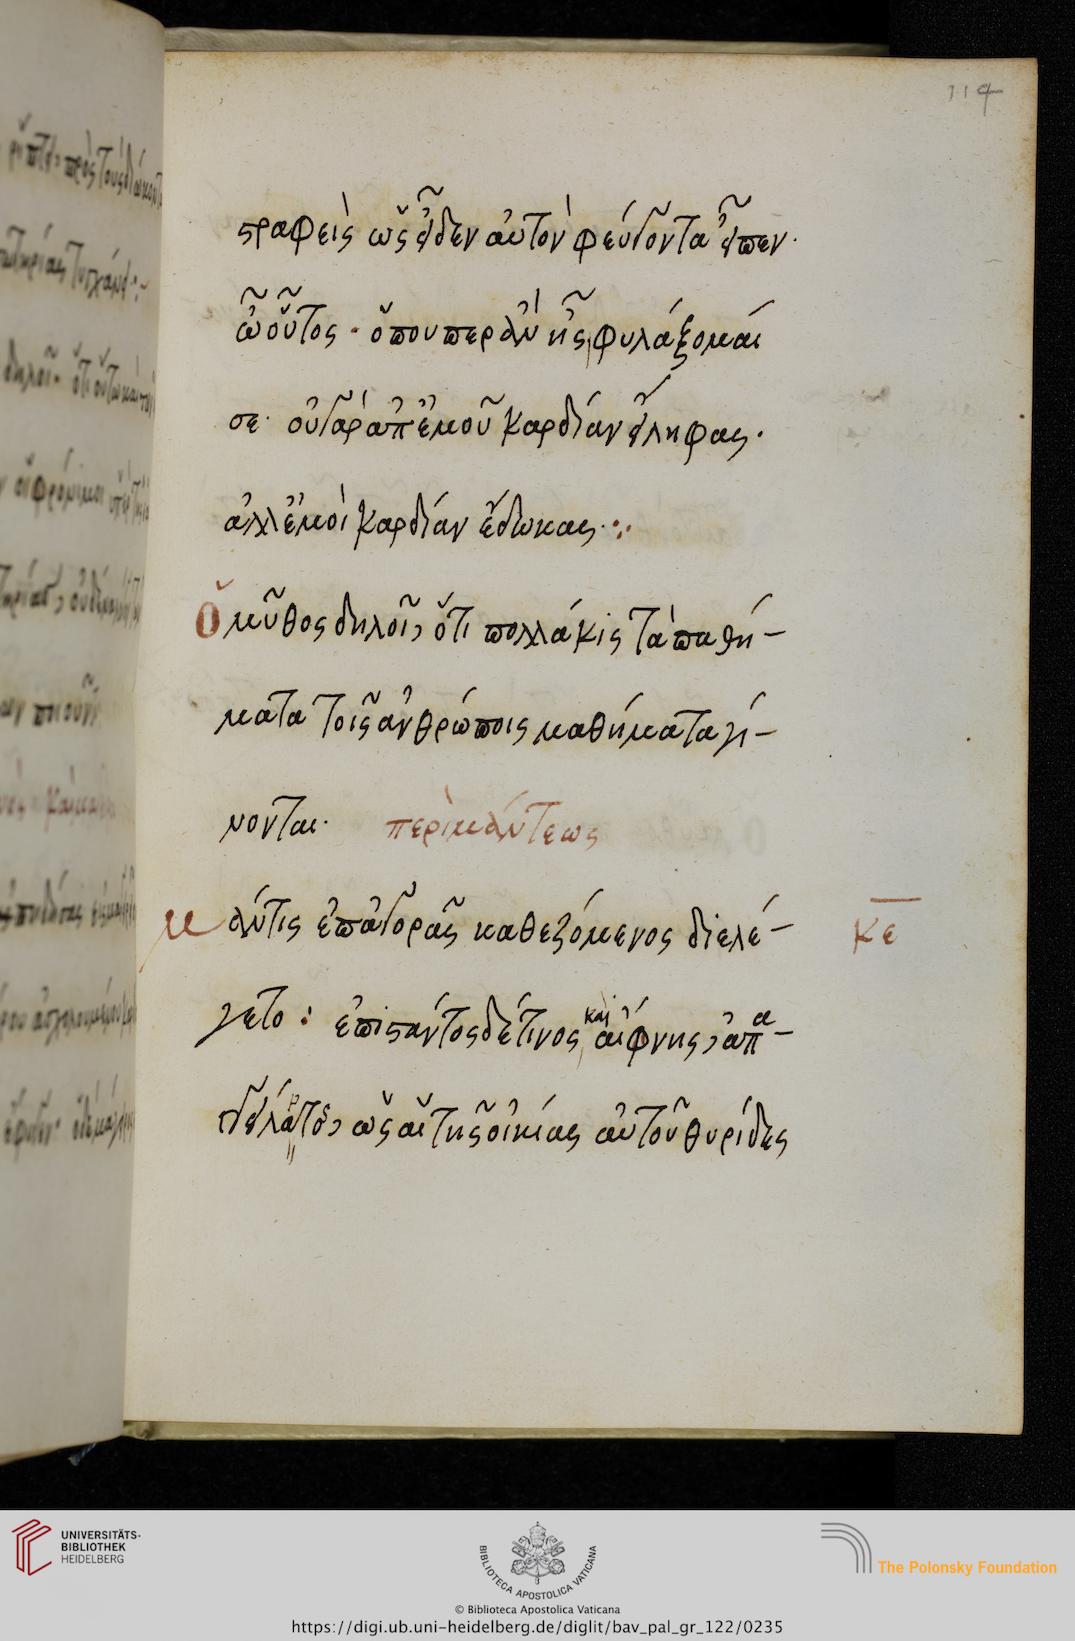 114
στραφεὶς ὡς εἶδεν αὐτὸν φεύγοντα εἶπεν·
ὦ οὗτος· ὅπουπερ ἂν ᾖς, φυλάξομαί
σε· οὐ γὰρ ἀπ' ἐμοῦ καρδίαν εἴληφας·
ἀλλ' ἐμοὶ καρδίαν ἔδωκας·:
Ὁ μῦθος δηλοῖ, ὅτι πολλάκις τὰ παθή-
ματα τοῖς ἀνθρώποις μαθήματα γί-
νονται· περὶ μάντεως
μάντις ἐπ' ἀγορᾶς καθεζόμενος διελέ- κε
γετο: ἐπιστάντος δέ τινος καὶ αἴφνης, ἀπα-
γγείλαντος, ὡς αἵ τῆς οἰκίας αὐτοῦ θυρίδες
UNIVERSITÄTS-
BIBLIOTHEK
HEIDELBERG
BIBLIOTECA APOSTOLICA VATICANA
The Polonsky Foundation
© Biblioteca Apostolica Vaticana
https://digi.ub.uni-heidelberg.de/diglit/bav_pal_gr_122/0235